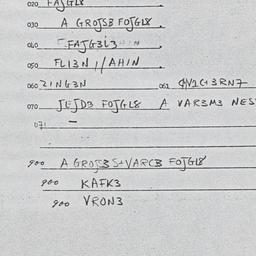 020 FAJGL8
030 A GROJSB FOJGL8
040 FAJG3L3
050 FL13N / /AHIN
060 ZING3N 061
070 JLJD3 FOJGL8 A VAR3M3 NES
071 –
900 A GROJS3 S+VARC3 FOJGL8
900 KAFK3
900 VRON3